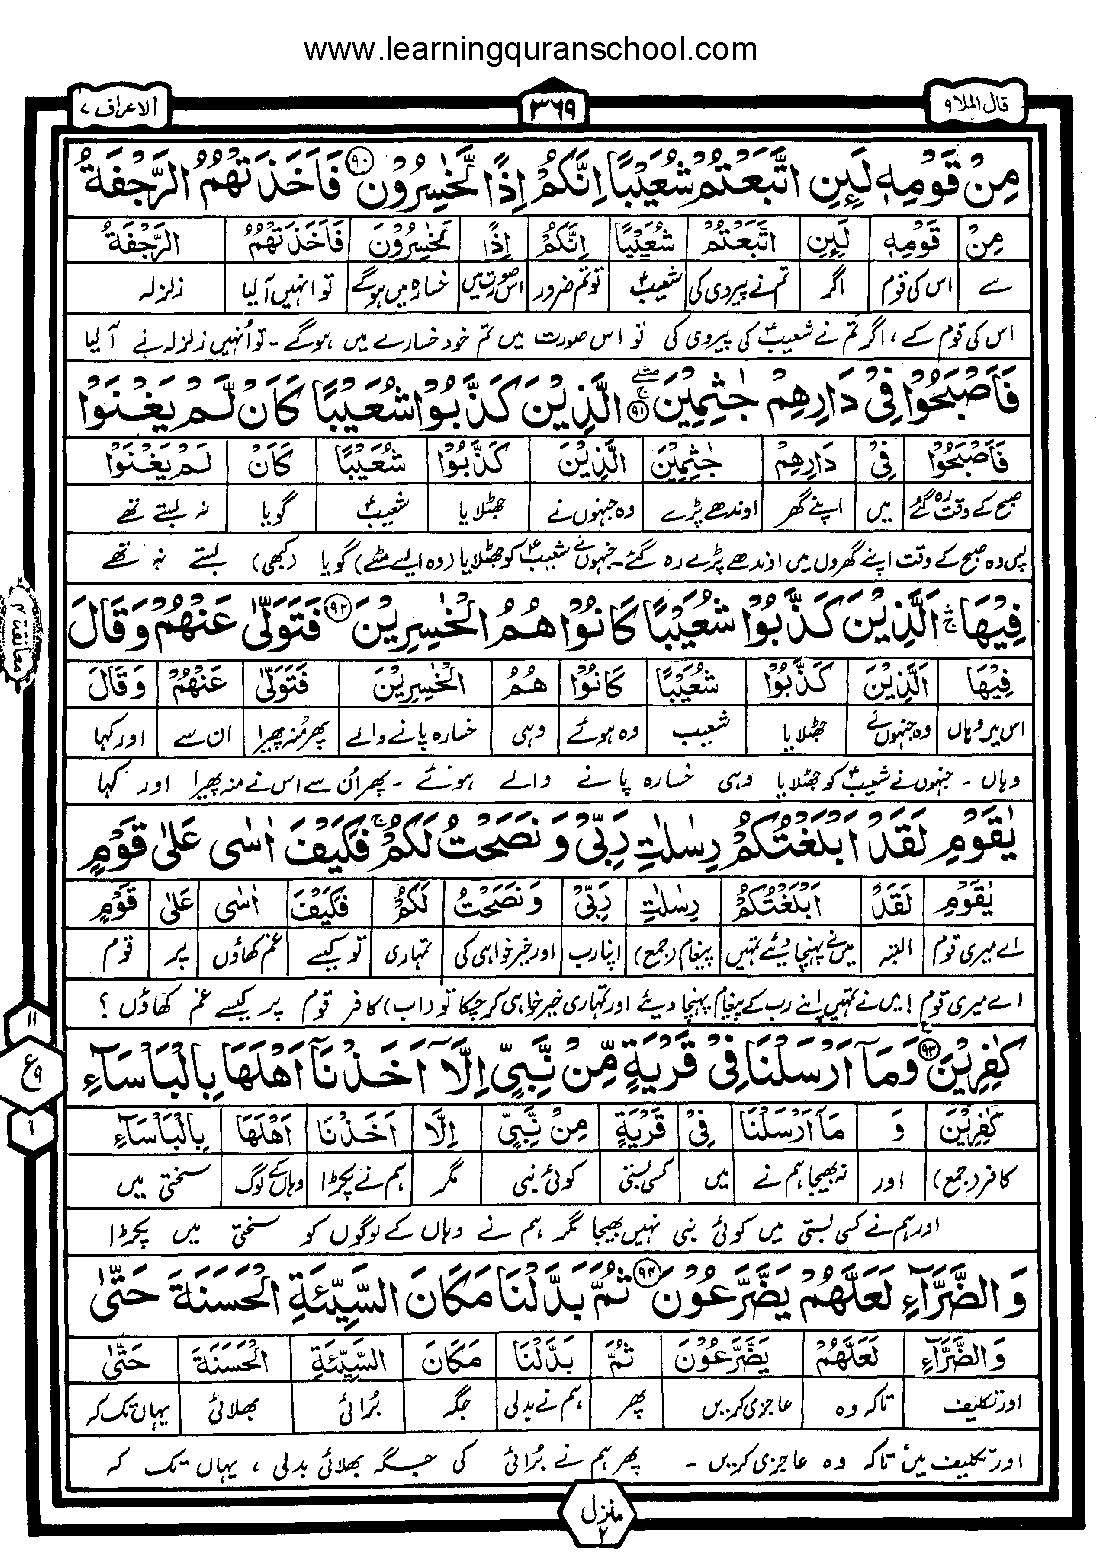 www.learningquranschool.com
قال الملا ۹
۳۶۹
الاعراف ۷
مِنْ قَوْمِهٖ لَىِٕنِ اتَّبَعْتُمْ شُعَیْبًا اِنَّكُمْ اِذًا لَّخٰسِرُوْنَ ﴿۹۰﴾ فَاَخَذَتْهُمُ الرَّجْفَةُ
مِنْ قَوْمِهٖ لَىِٕنِ اتَّبَعْتُمْ شُعَیْبًا اِنَّكُمْ اِذًا لَّخٰسِرُوْنَ فَاَخَذَتْهُمُ الرَّجْفَةُ
سے اس کی قوم اگر تم نے پیروی کی شعیبؑ تو تم ضرور اس صورت میں خسارہ میں ہوگے تو انہیں آلیا زلزلہ
اس کی قوم کے، اگر تم نے شعیبؑ کی پیروی کی تو اس صورت میں تم خود خسارے میں ہوگے - تو اُنہیں زلزلہ نے آلیا
فَاَصْبَحُوْا فِیْ دَارِهِمْ جٰثِمِیْنَ ﴿۹۱﴾ الَّذِیْنَ كَذَّبُوْا شُعَیْبًا كَاَنْ لَّمْ یَغْنَوْا
فَاَصْبَحُوْا فِیْ دَارِهِمْ جٰثِمِیْنَ الَّذِیْنَ كَذَّبُوْا شُعَیْبًا كَاَنْ لَمْ یَغْنَوْا
صبح کے وقت رہ گئے میں اپنے گھر اوندھے پڑے وہ جنہوں نے جھٹلایا شعیبؑ گویا نہ بستے تھے
پس وہ صبح کے وقت اپنے گھروں میں اوندھے پڑے رہ گئے۔ جنہوں نے شعیبؑ کو جھٹلایا (وہ ایسے مٹے) گویا (کبھی) بستے نہ تھے
فِیْهَا ۛۚ اَلَّذِیْنَ كَذَّبُوْا شُعَیْبًا كَانُوْا هُمُ الْخٰسِرِیْنَ ﴿۹۲﴾ فَتَوَلّٰی عَنْهُمْ وَقَالَ
معانقة
فِیْهَا اَلَّذِیْنَ كَذَّبُوْا شُعَیْبًا كَانُوْا هُمُ الْخٰسِرِیْنَ فَتَوَلّٰی عَنْهُمْ وَقَالَ
اس میں وہاں وہ جنہوں نے جھٹلایا شعیب وہ ہوئے وہی خسارہ پانے والے پھر منہ پھیرا ان سے اور کہا
وہاں - جنہوں نے شعیبؑ کو جھٹلایا وہی خسارہ پانے والے ہوئے - پھر اُن سے اس نے منہ پھیرا اور کہا
یٰقَوْمِ لَقَدْ اَبْلَغْتُكُمْ رِسٰلٰتِ رَبِّیْ وَنَصَحْتُ لَكُمْ ۚ فَكَیْفَ اٰسٰی عَلٰی قَوْمٍ
یٰقَوْمِ لَقَدْ اَبْلَغْتُكُمْ رِسٰلٰتِ رَبِّیْ وَنَصَحْتُ لَكُمْ فَكَیْفَ اٰسٰی عَلٰی قَوْمٍ
اے میری قوم البتہ میں نے پہنچا دیئے تمہیں پیغام (جمع) اپنا رب اور خیر خواہی کی تمہاری تو کیسے غم کھاؤں پر قوم
اے میری قوم! میں نے تمہیں اپنے رب کے پیغام پہنچا دیئے اور تمہاری خیر خواہی کر چکا تو (اب) کافر قوم پر کیسے غم کھاؤں ؟
كٰفِرِیْنَ ﴿۹۳﴾ وَمَاۤ اَرْسَلْنَا فِیْ قَرْیَةٍ مِّنْ نَّبِیٍّ اِلَّاۤ اَخَذْنَاۤ اَهْلَهَا بِالْبَاْسَآءِ
۱۱
ع ۹
۱
كٰفِرِیْنَ وَ مَاۤ اَرْسَلْنَا فِیْ قَرْیَةٍ مِنْ نَّبِیٍّ اِلَّا اَخَذْنَا اَهْلَهَا بِالْبَاْسَآءِ
کافر (جمع) اور نہ بھیجا ہم نے میں کسی بستی کوئی نبی مگر ہم نے پکڑا وہاں کے لوگ سختی میں
اور ہم نے کسی بستی میں کوئی نبی نہیں بھیجا مگر ہم نے وہاں کے لوگوں کو سختی میں پکڑا
وَالضَّرَّآءِ لَعَلَّهُمْ یَضَّرَّعُوْنَ ﴿۹۴﴾ ثُمَّ بَدَّلْنَا مَكَانَ السَّیِّئَةِ الْحَسَنَةَ حَتّٰی
وَالضَّرَّآءِ لَعَلَّهُمْ یَضَّرَّعُوْنَ ثُمَّ بَدَّلْنَا مَكَانَ السَّیِّئَةِ الْحَسَنَةَ حَتّٰی
اور تکلیف تاکہ وہ عاجزی کریں پھر ہم نے بدلی جگہ بُرائی بھلائی یہاں تک کہ
اور تکلیف میں تاکہ وہ عاجزی کریں - پھر ہم نے بُرائی کی جگہ بھلائی بدلی ، یہاں تک کہ
منزل ۲